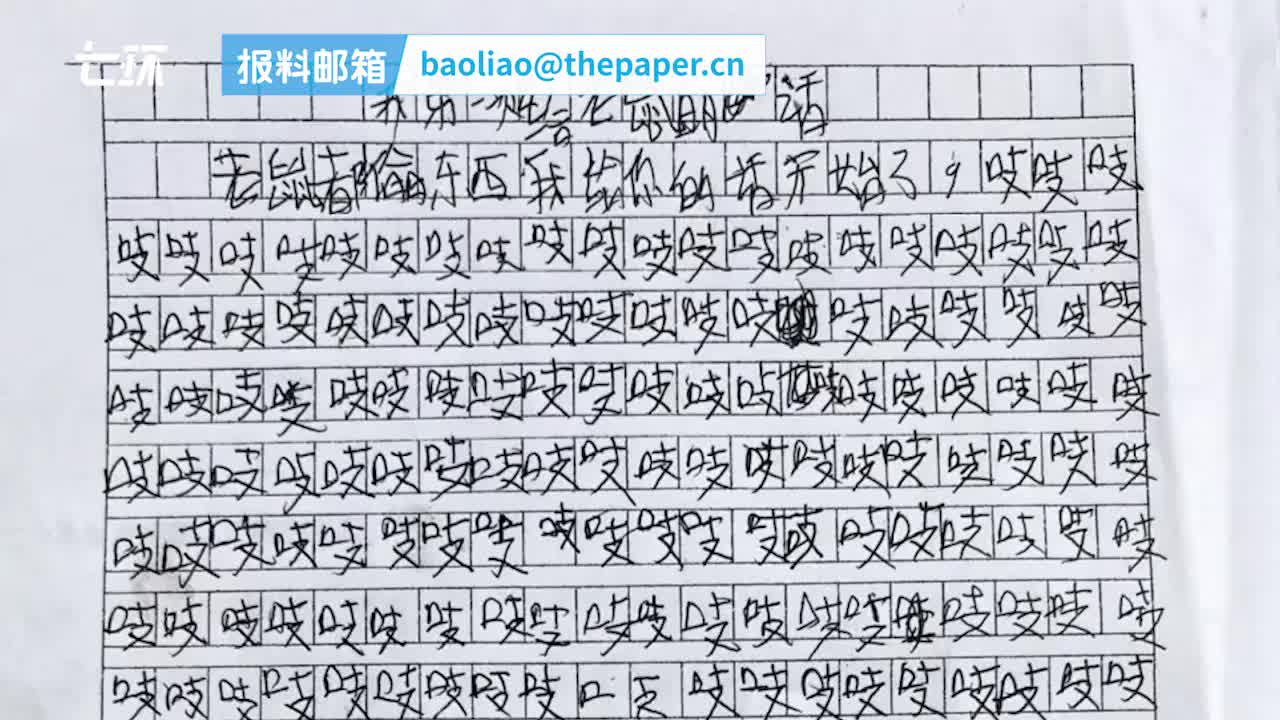 七环
报料邮箱 baoliao@thepaper.cn
我第一 给老 话
老鼠都偷东西我给你的话开始了，吱吱吱
吱吱吱吱吱吱吱吱吱吱吱吱吱吱吱吱吱吱吱吱
吱吱吱吱吱吱吱吱吱吱吱吱吱吱吱吱吱吱吱
吱吱吱吱吱吱吱吱吱吱吱吱吱吱吱吱吱吱吱
吱吱吱吱吱吱吱吱吱吱吱吱吱吱吱吱吱吱吱吱
吱吱吱吱吱吱吱吱吱吱吱吱吱吱吱吱吱吱吱吱
吱吱吱吱吱吱吱吱吱吱吱吱吱吱吱吱吱吱吱
吱吱吱吱吱吱吱吱吱口支吱吱吱吱吱吱吱吱吱